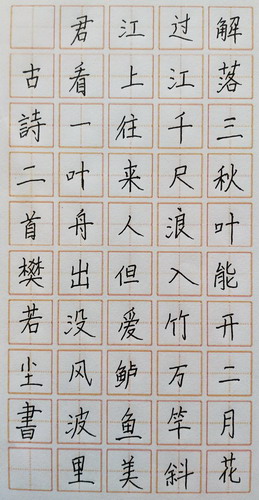 解落三秋叶能开二月花
过江千尺浪入竹万竿斜
江上往来人但爱鲈鱼美
君看一叶舟出没风波里
古詩二首樊若尘書